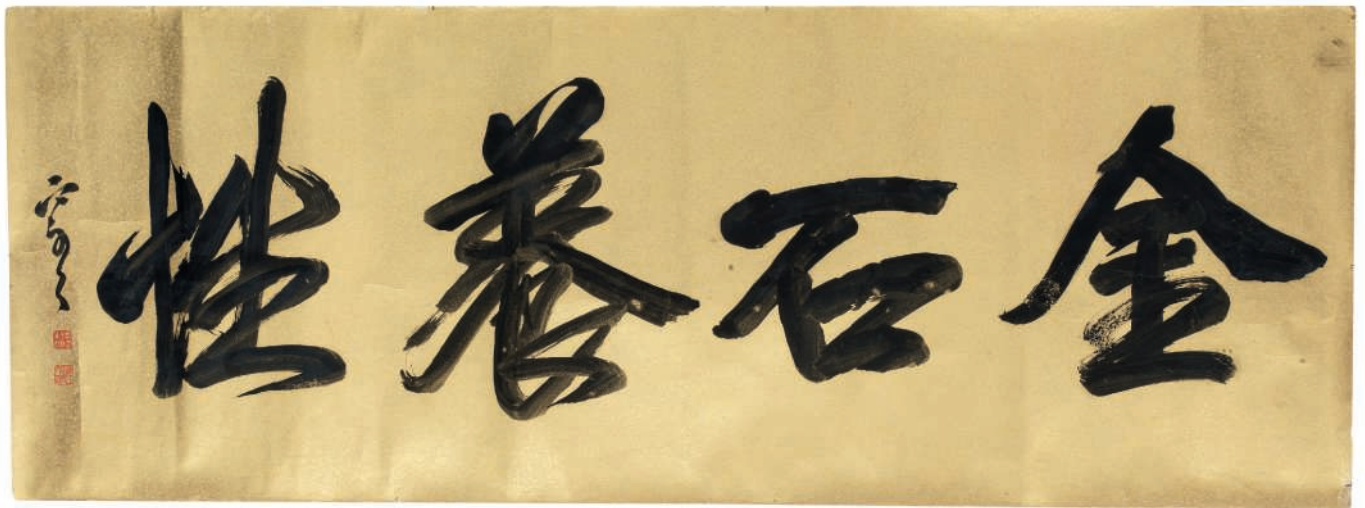 金石養性